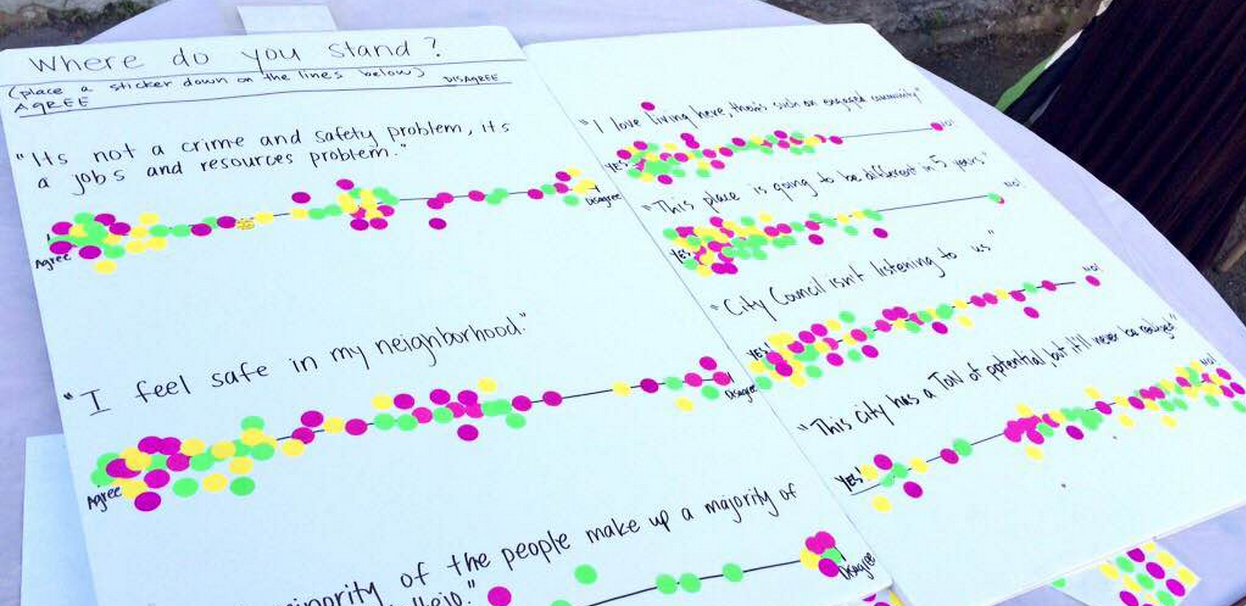 Where do you stand?
(place a sticker down on the lines below)
AGREE DISAGREE
"Its not a crime and safety problem, its
a jobs and resources problem."
Agree Disagree
"I feel safe in my neighborhood."
Agree Disagree
of the people make up a majority of
Disagree
"I love living here, there's such an engaged community"
YES NO!
"This place is going to be different in 5 years"
YES NO!
"City Council isn't listening to us"
YES! NO!
"This city has a TON of potential, but it'll never be realized"
YES! NO!